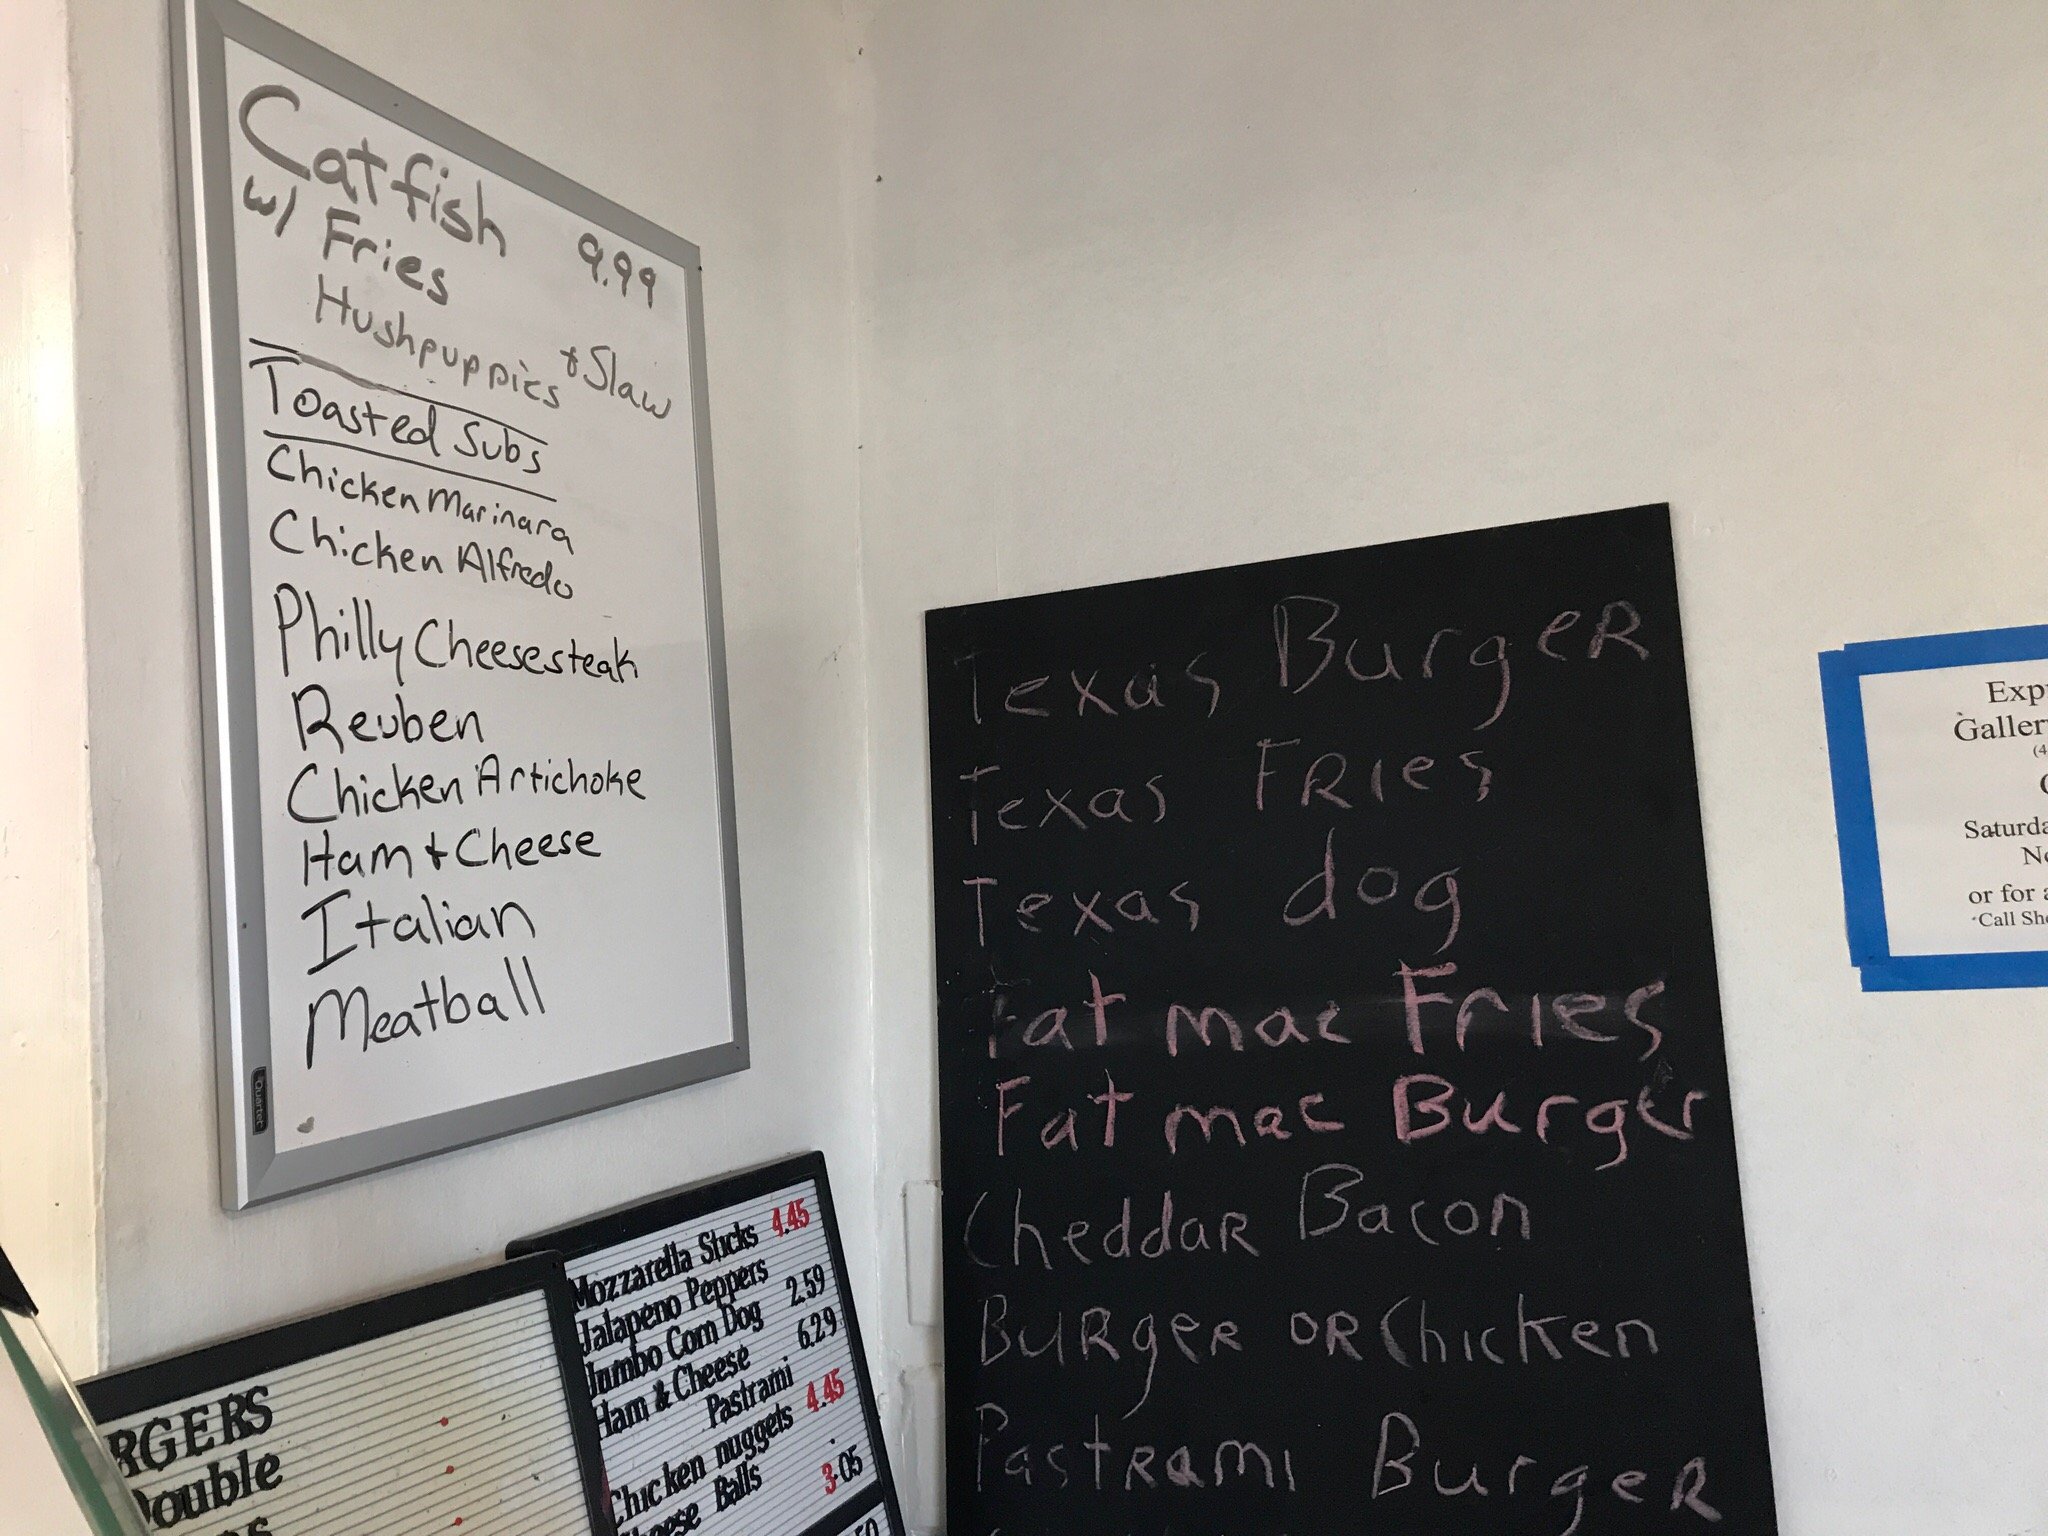 Catfish 9.99
w/ Fries
Hushpuppies + Slaw
Toasted Subs
Chicken Marinara
Chicken Alfredo
Philly Cheesesteak
Reuben
Chicken Artichoke
Ham + Cheese
Italian
Meatball
Quartet
Texas BurgeR
Texas FRIes
Texas dog
Fat mac Fries
Fat mac Burger
CheddaR Bacon
BuRgeR OR Chicken
PastRami BurgeR
Mozzarella Sticks 4.45
Jalapeno Peppers
Jumbo Corn Dog 2.59
Ham & Cheese 6.29
Pastrami
Chicken nuggets 4.45
Cheese Balls 3.05
RGERS
Double
Exp
Galler
(4
Saturda
No
or for a
*Call Sh